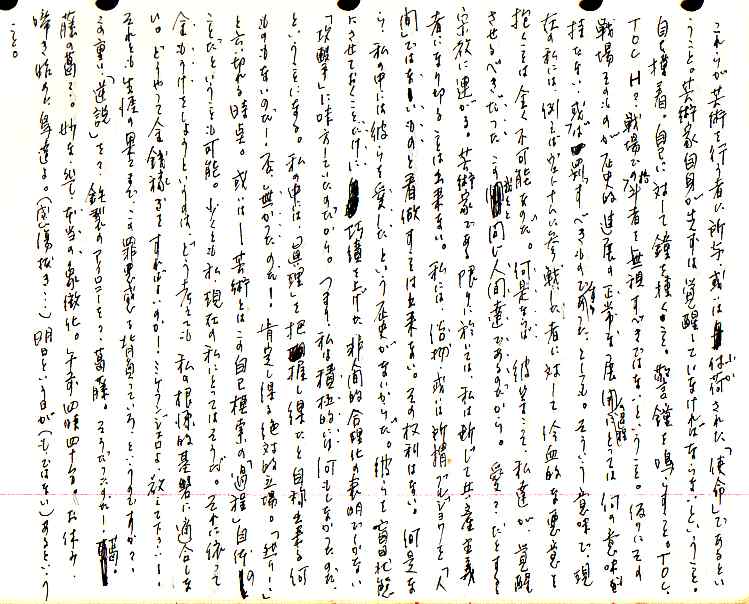 これらが芸術を行う者に所与、或は付荷された「使命」であるという
うこと。芸術家自身が先ずは覚醒していなければならないということ。
自己模着。自己に対して鐘を撞くこと。警鐘を鳴らすこと。TOC,
TOC H? 戦場での斗者を無視すべきではないということ。仮りにその
戦場そのものが歴史的進展の正常な展開にとっては何の意味も
持たない、或は罰すべきものであったとしても。そういう意味で、現
在の私には、例えばヴェトナムに参戦した者に対して冷血的な悪意を
抱くことは全く不可能なのだ。何是なら、彼等こそ、私達が覚醒
させるべきだった、この同じ人間達であるのだから。愛? だとすると
宗教に連がる。芸術家である限りに於いては、私は断じて共産主義
者になり切ることは出来ない。私には、俗物、或は所謂ブルジョワを「人
間」ではないものと看做すことは出来ない。その権利はない。何是な
ら、私の中には彼らを愛したという歴史がないからだ。彼らを冨冒状態
にさせておくことだけに功績を上げた非人間的合理化の表明でしかない
「攻撃」に味方していたのだから。つまり、私は積極的には何もしなかったのだ、
ということになる。私の中には、「真理」を把握し得たと自称出来る何
ものもないのだ! 否、無かったのだ! 肯定し得る絶対的立場。「然り!」
と云い切れる時点。或いは――芸術とはこの自己模索の「過程」自体の
ことだということも可能。少くとも私、現在の私にとってはそうだ。それに依って
金もうけをしようというのは、どう考えても私の根源的基盤に適合しな
い。どうやって金銭稼ぎをすればいいのか! ミケランジェロよ、教えて下さい!
それとも生涯の果てまで、この罪悪感を背負っていろ、というのですか?
この重い「逆説」を? 鉄製のアイロニーを? 葛藤。そうだったのだ! 葛。
藤の葛で。妙な、然し本当の象徴化。午前四時四十分。お休み。
啼き始めた鳥達よ。(感傷抜き…) 明日という日が(もではない)あるという
こと。